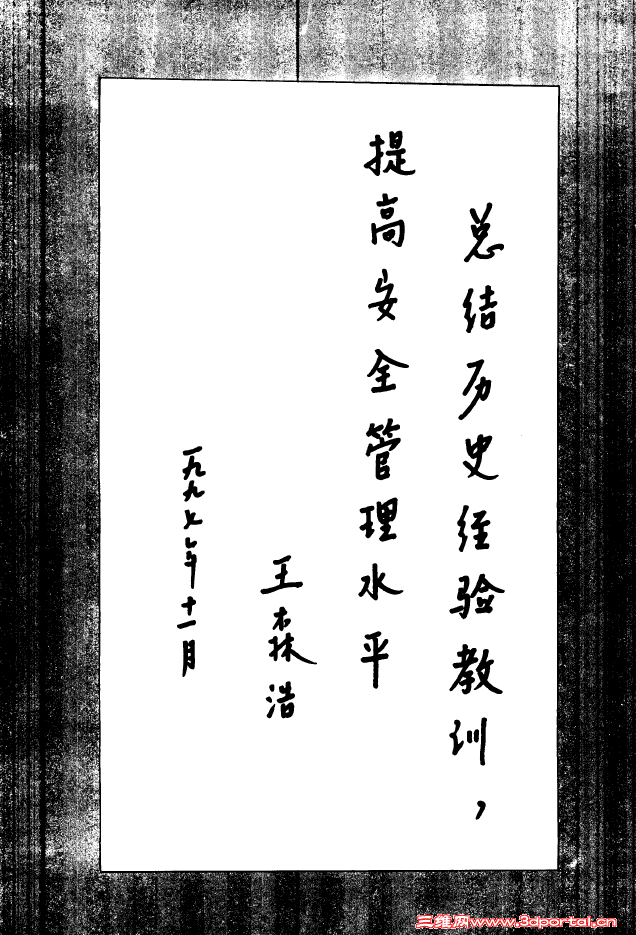 总结历史经验教训，
提高安全管理水平
王森浩
一九九七年十一月
三维网www.3dportal.cn